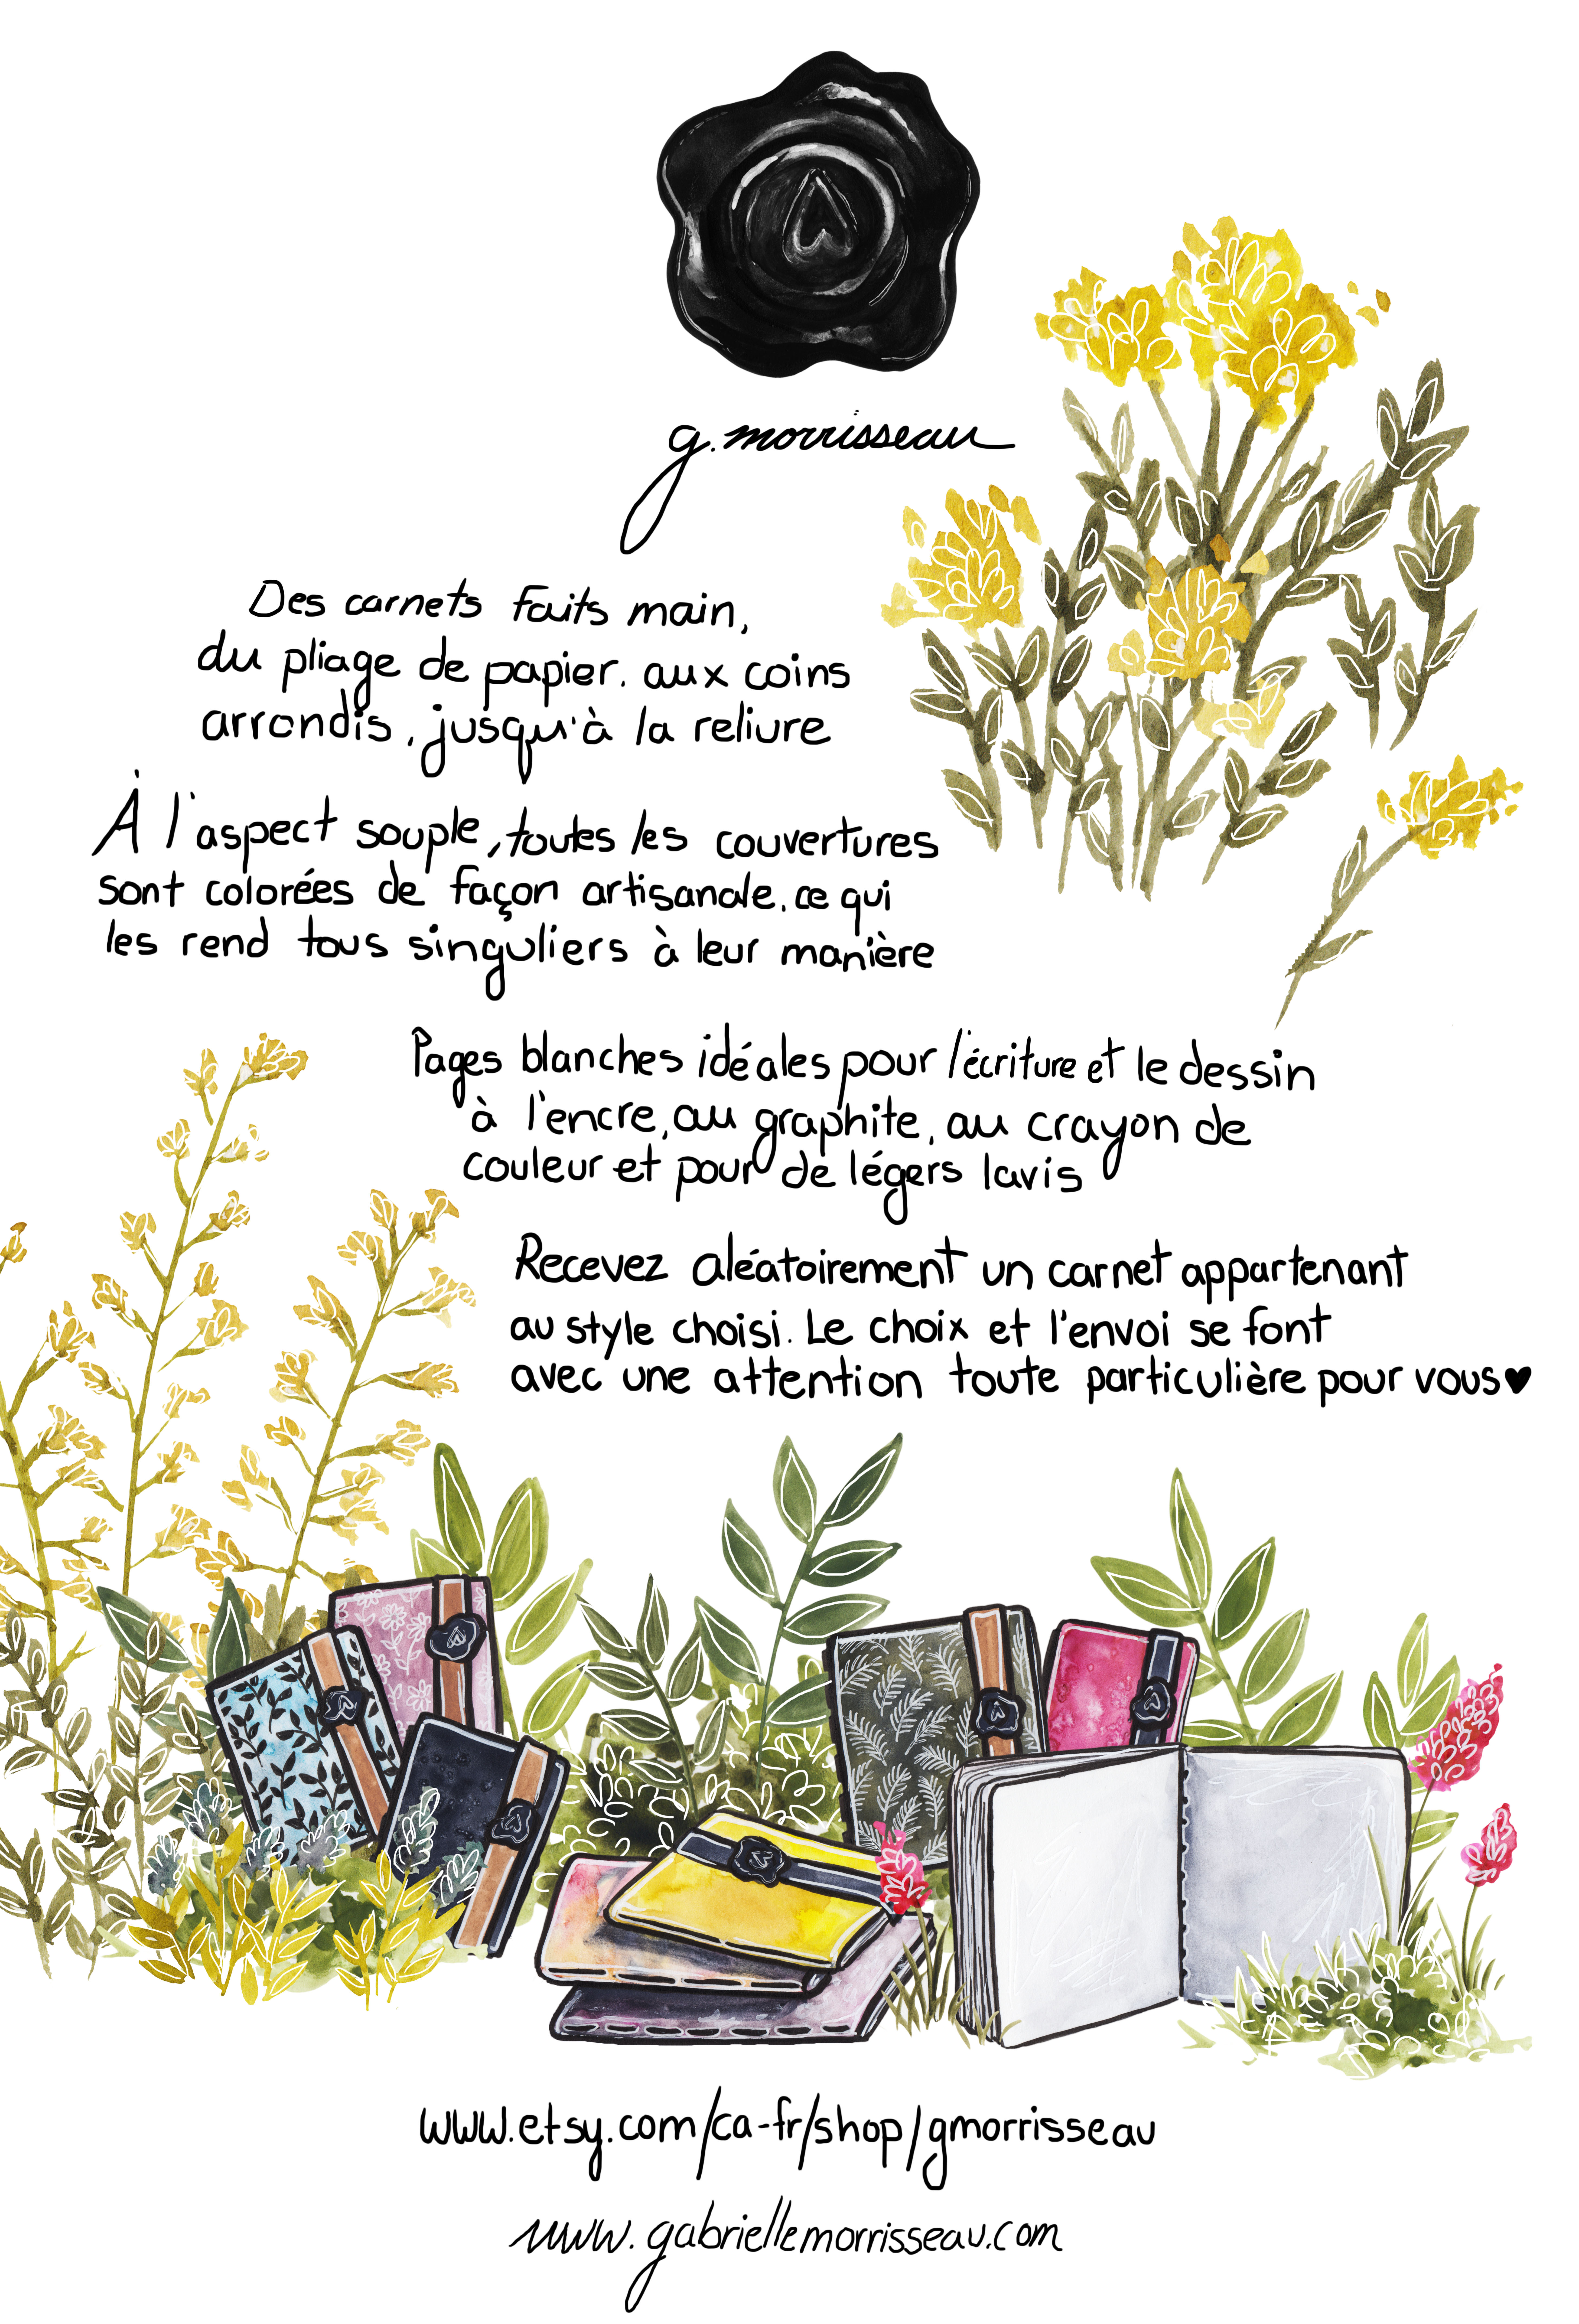 g. morrisseau
Des carnets faits main,
du pliage de papier, aux coins
arrondis, jusqu'à la reliure
À l'aspect souple, toutes les couvertures
sont colorées de façon artisanale, ce qui
les rend tous singuliers à leur manière
Pages blanches idéales pour l'écriture et le dessin
à l'encre, au graphite, au crayon de
couleur et pour de légers lavis
Recevez aléatoirement un carnet appartenant
au style choisi. Le choix et l'envoi se font
avec une attention toute particulière pour vous♥
www.etsy.com/ca-fr/shop/gmorrisseau
www.gabriellemorrisseau.com